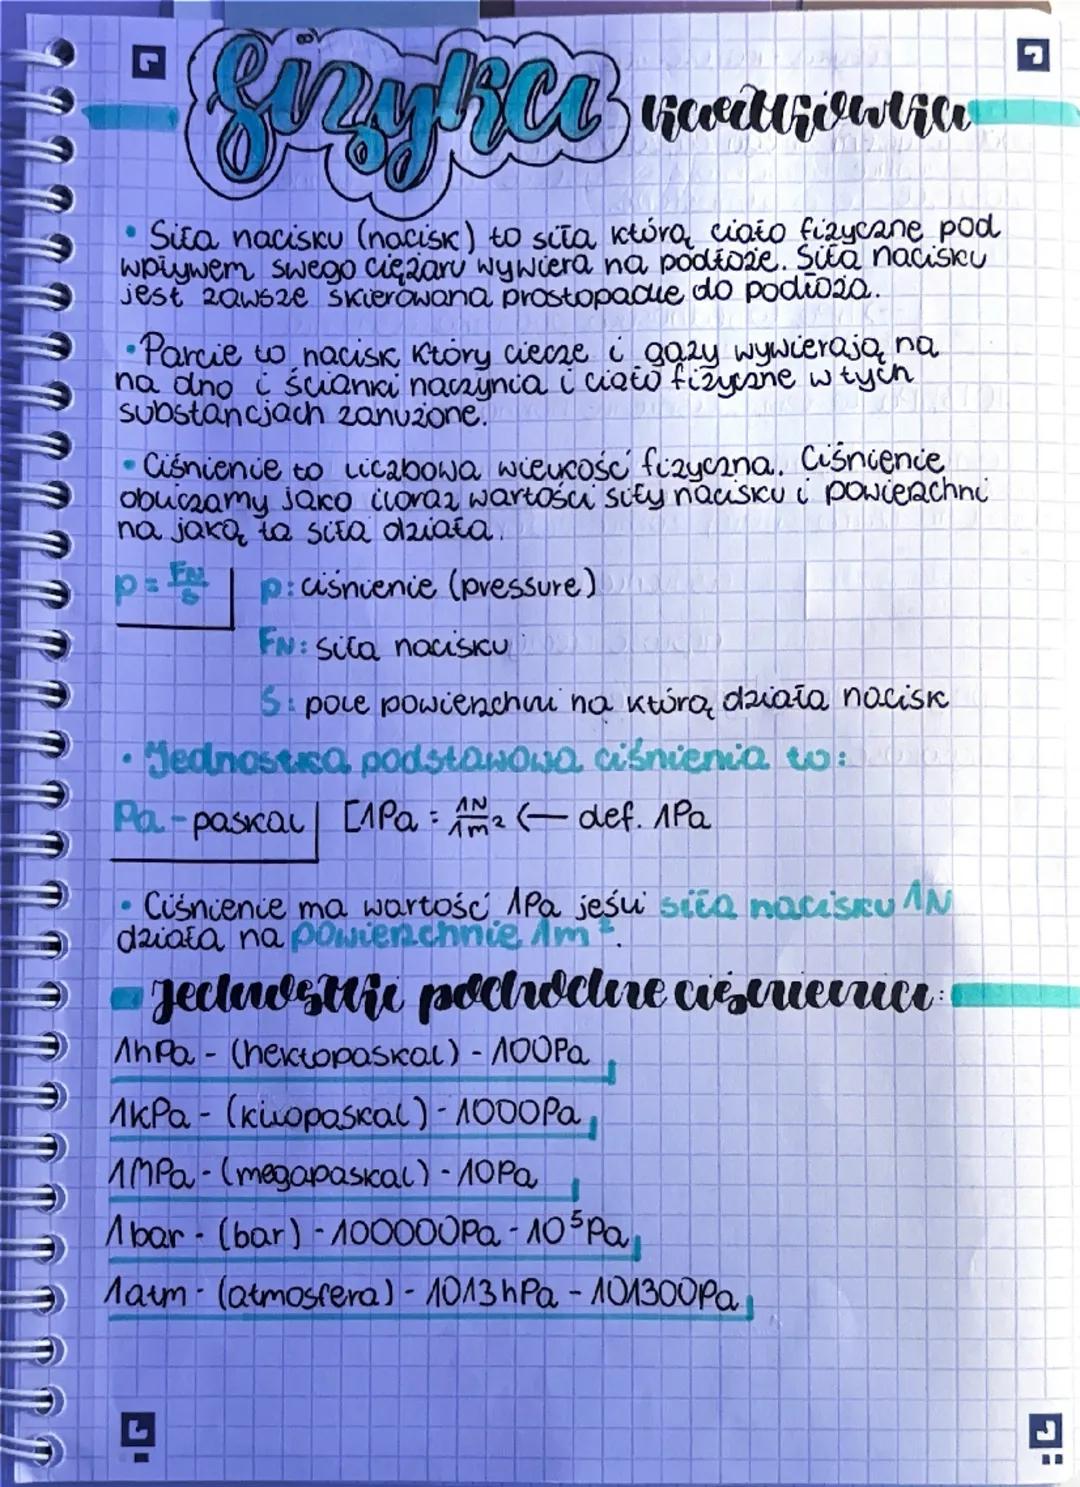 fizyka kartkówka
• Siła nacisku (nacisk) to siła którą ciało fizyczne pod
wpływem swego ciężaru wywiera na podłoże. Siła nacisku
jest zawsze skierowana prostopadle do podłoża.
• Parcie to nacisk który ciecze i gazy wywierają na
na dno i ścianki naczynia i ciało fizyczne w tych
substancjach zanużone.
• Ciśnienie to liczbowa wielkość fizyczna. Ciśnienie
obliczamy jako iloraz wartości siły nacisku i powierzchni
na jaką ta siła działa.
p = FN/s p: ciśnienie (pressure)
FN: siła nacisku
S: pole powierzchni na którą działa nacisk
• Jednostka podstawowa ciśnienia to:
Pa - paskal [1Pa = 1N/1m² ← def. 1Pa
• Ciśnienie ma wartość 1Pa jeśli siła nacisku 1N
działa na powierzchnię 1m².
Jednostki pochodne ciśnienia:
1hPa - (hektopaskal) - 100Pa
1kPa - (kilopaskal) - 1000Pa
1MPa - (megapaskal) - 10Pa
1bar - (bar) - 100000Pa - 10⁵Pa
1atm - (atmosfera) - 1013hPa - 101300Pa